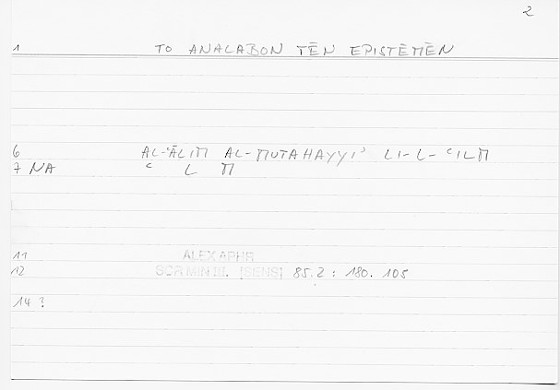 2
1 TO ANALABON TĒN EPISTĒMĒN
6 AL-ʿĀLIM AL-MUTAHAYYIʾ LI-L-ʿILM
7 NA ʿ L M
11 ALEX APHR
12 SCR MIN III. [SENS] 85.2 : 180. 105
14 ?